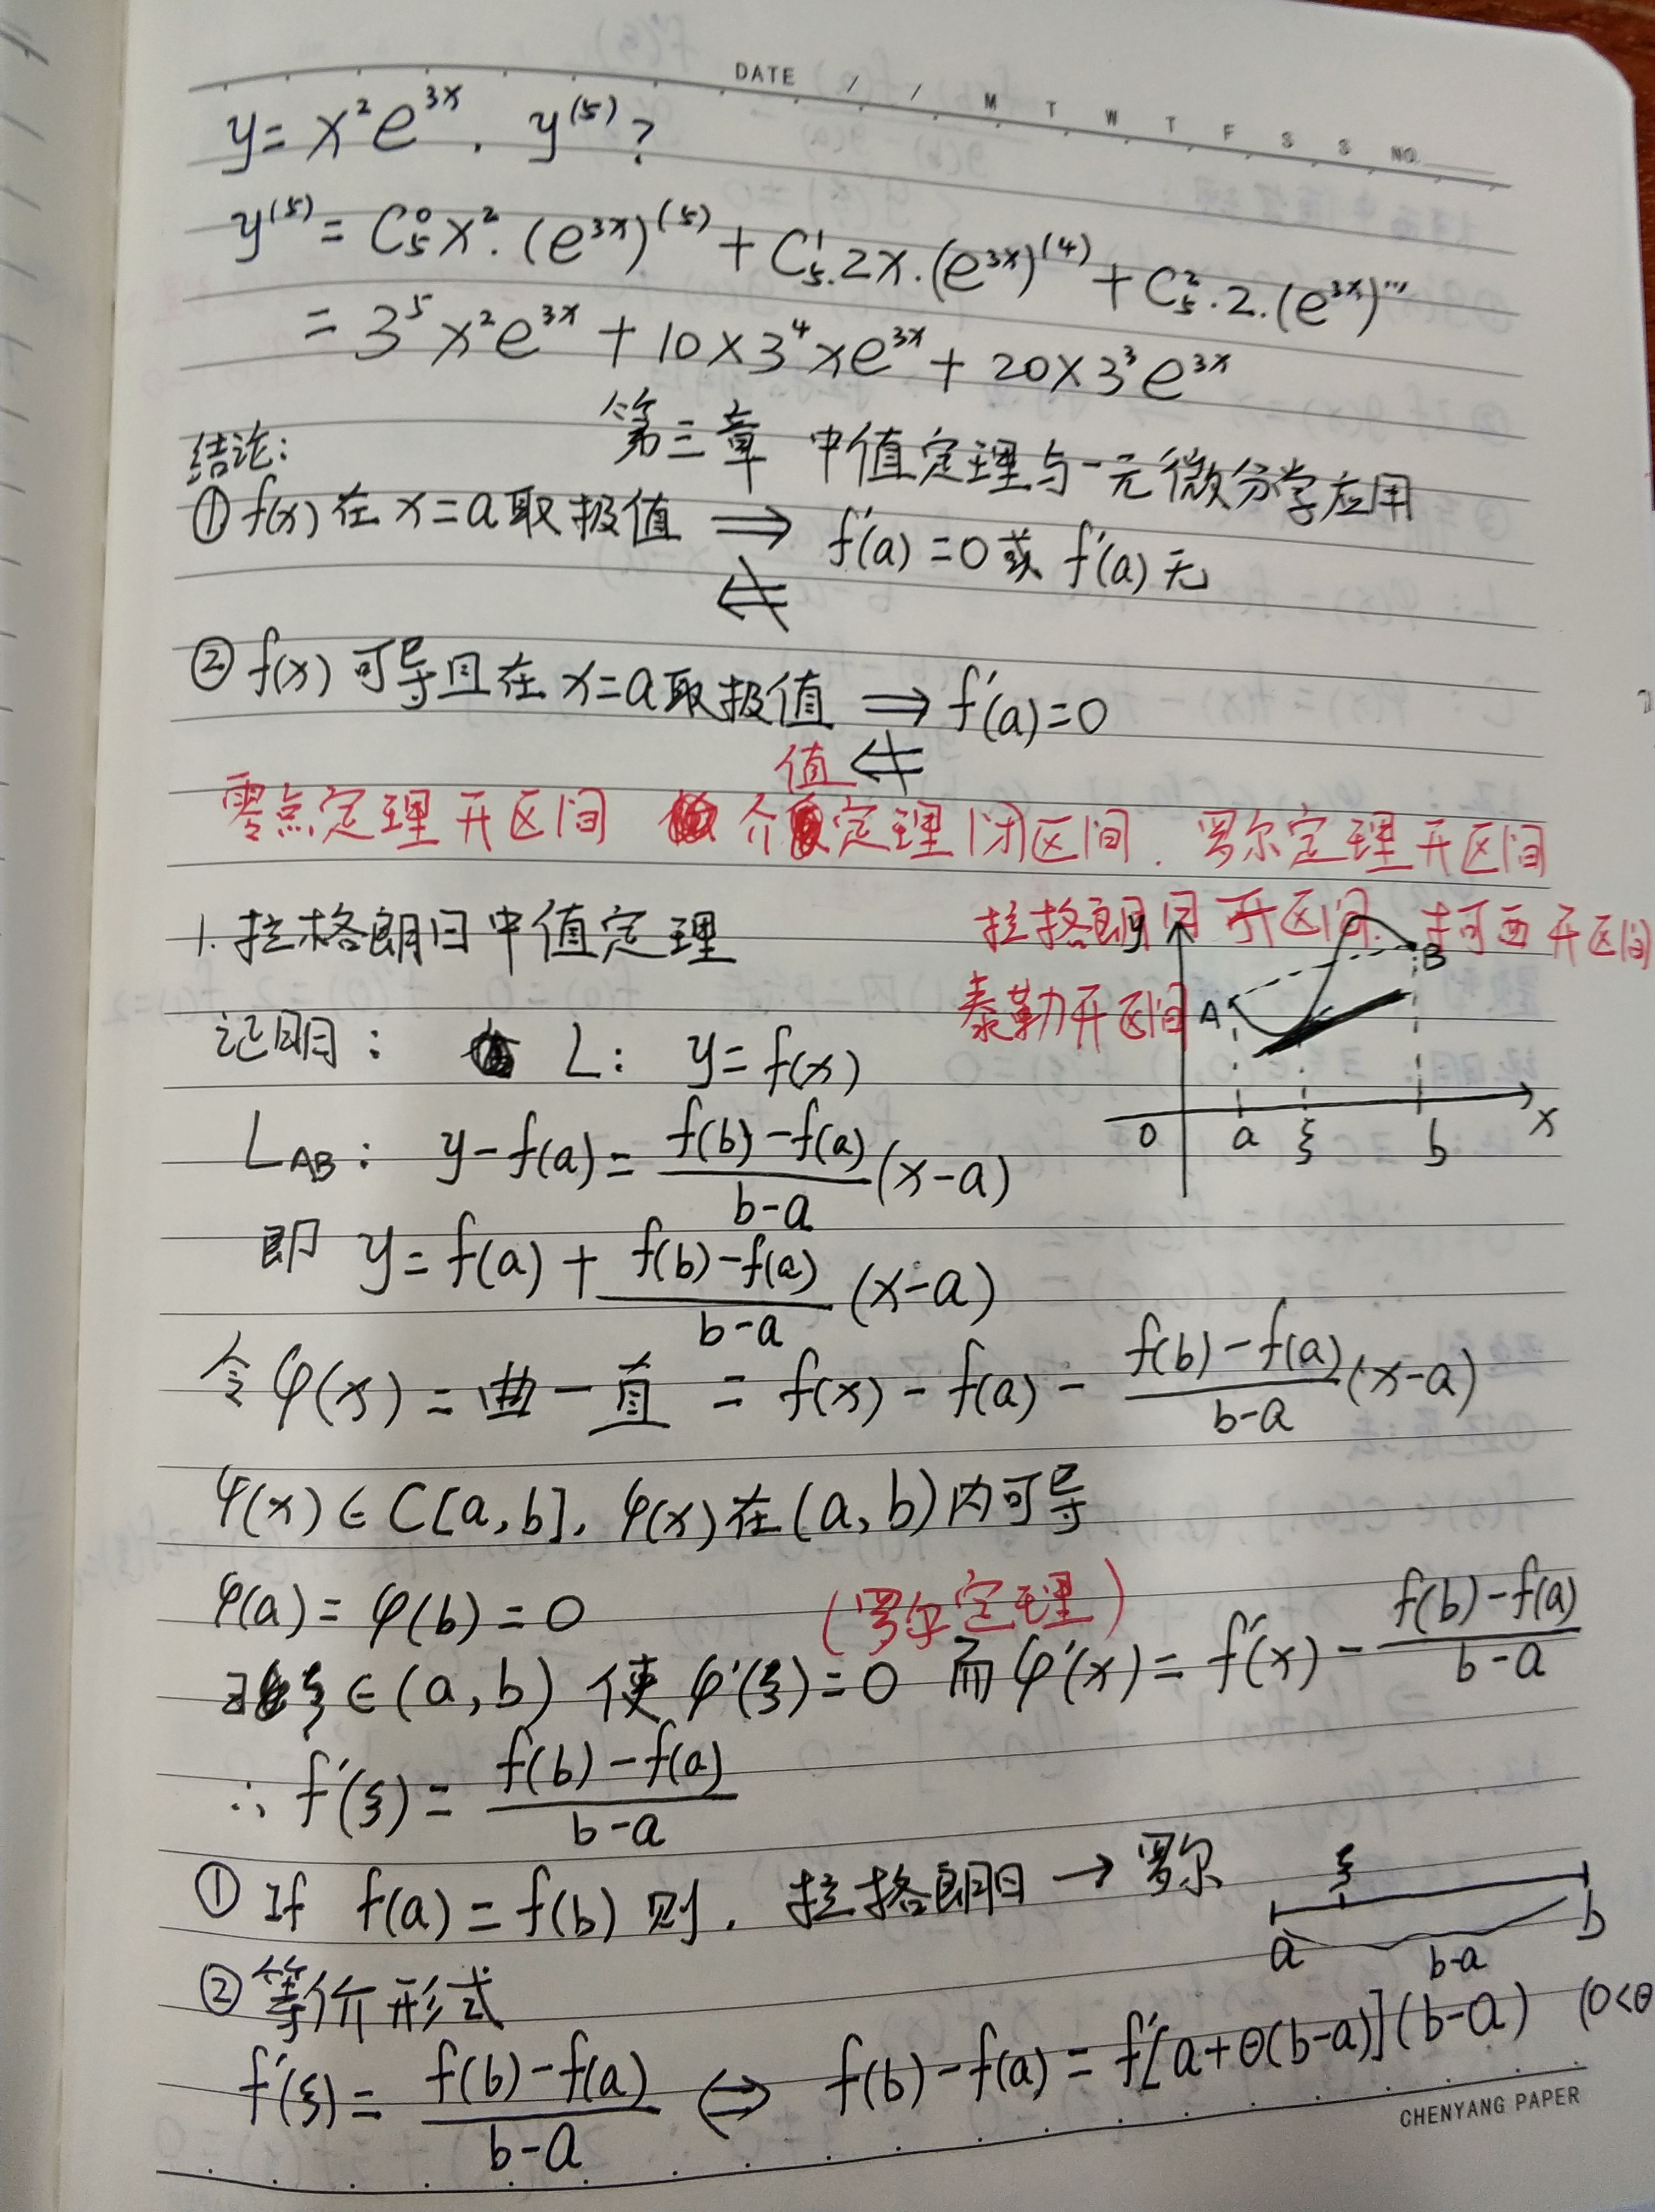 DATE / / M T W T F S S NO.
y = x²e^{3x} . y^{(5)} ?
y^{(5)} = C₅⁰x² · (e^{3x})^{(5)} + C₅¹ · 2x · (e^{3x})^{(4)} + C₅² · 2 · (e^{3x})'''
= 3⁵x²e^{3x} + 10×3⁴xe^{3x} + 20×3³e^{3x}
第三章 中值定理与一元微分学应用
结论:
① f(x) 在 x=a 取极值 ⟹ f'(a)=0 或 f'(a) 无
⇍
② f(x) 可导且在 x=a 取极值 ⟹ f'(a)=0
⇍
零点定理开区间 介值定理闭区间. 罗尔定理开区间
拉格朗日开区间. 柯西开区间
泰勒开区间
1. 拉格朗日中值定理
y A B
0 a ξ b x
证明: L: y = f(x)
L_{AB}: y-f(a) = \frac{f(b)-f(a)}{b-a}(x-a)
即 y = f(a) + \frac{f(b)-f(a)}{b-a}(x-a)
令 φ(x) = 曲-直 = f(x) - f(a) - \frac{f(b)-f(a)}{b-a}(x-a)
φ(x) ∈ C[a,b], φ(x) 在 (a,b) 内可导
φ(a) = φ(b) = 0 (罗尔定理)
∃ξ ∈ (a,b) 使 φ'(ξ) = 0 而 φ'(x) = f'(x) - \frac{f(b)-f(a)}{b-a}
∴ f'(ξ) = \frac{f(b)-f(a)}{b-a}
① If f(a) = f(b) 则, 拉格朗日 → 罗尔
ξ
a b
b-a
② 等价形式
f'(ξ) = \frac{f(b)-f(a)}{b-a} ⇔ f(b)-f(a) = f'[a+θ(b-a)](b-a) (0<θ
CHENYANG PAPER